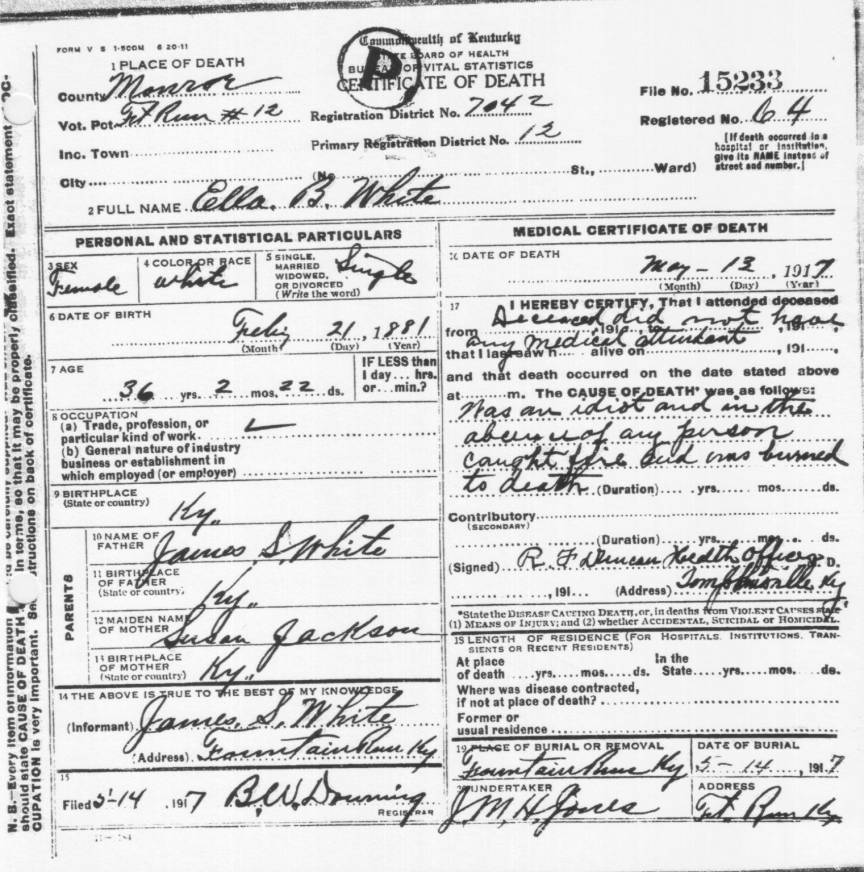 FORM V S 1-500M 6 20-11
Commonwealth of Kentucky
STATE BOARD OF HEALTH
BUREAU OF VITAL STATISTICS
CERTIFICATE OF DEATH
P
1 PLACE OF DEATH
County Monroe
Vot. Pct. Ft Run # 12
Inc. Town
City (No St., Ward)
Registration District No. 7042
Primary Registration District No. 12
File No. 15233
Registered No. 64
[If death occurred in a
hospital or institution,
give its NAME instead of
street and number.]
2 FULL NAME Ella. B. White
PERSONAL AND STATISTICAL PARTICULARS
3 SEX
Female
4 COLOR OR RACE
White
5 SINGLE,
MARRIED
WIDOWED,
OR DIVORCED
(Write the word)
Single
6 DATE OF BIRTH
Feby 21, 1881
(Month) (Day) (Year)
7 AGE
36 yrs. 2 mos. 22 ds.
IF LESS than
1 day... hrs.
or... min.?
8 OCCUPATION
(a) Trade, profession, or
particular kind of work
(b) General nature of industry
business or establishment in
which employed (or employer)
9 BIRTHPLACE
(State or country)
Ky.,
PARENTS
10 NAME OF
FATHER
James. S. White
11 BIRTHPLACE
OF FATHER
(State or country)
Ky.,
12 MAIDEN NAME
OF MOTHER
Susan Jackson
13 BIRTHPLACE
OF MOTHER
(State or country)
Ky.,
14 THE ABOVE IS TRUE TO THE BEST OF MY KNOWLEDGE
(Informant) James. S. White
(Address) Fountain Run Ky
15
Filed 5-14, 1917 B.W. Downing
REGISTRAR
MEDICAL CERTIFICATE OF DEATH
16 DATE OF DEATH
May - 13, 1917
(Month) (Day) (Year)
17 I HEREBY CERTIFY, That I attended deceased
Deceased did not have
from , 191 , to , 191 ,
any medical attendant
that I last saw h alive on , 191 ,
and that death occurred on the date stated above
at m. The CAUSE OF DEATH* was as follows:
Was an idiot and in the
absence of any person
caught fire and was burned
to death (Duration) yrs. mos. ds.
Contributory
(SECONDARY)
(Duration) yrs. mos. ds.
(Signed) R. F Duncan Health Officer M. D.
, 191 (Address) Tompkinsville Ky
*State the DISEASE CAUSING DEATH, or, in deaths from VIOLENT CAUSES state
(1) MEANS OF INJURY; and (2) whether ACCIDENTAL, SUICIDAL or HOMICIDAL.
18 LENGTH OF RESIDENCE (FOR HOSPITALS, INSTITUTIONS, TRAN-
SIENTS OR RECENT RESIDENTS)
At place
of death yrs. mos. ds.
In the
State yrs. mos. ds.
Where was disease contracted,
if not at place of death?
Former or
usual residence
19 PLACE OF BURIAL OR REMOVAL
Fountain Run Ky
DATE OF BURIAL
5-14, 1917
20 UNDERTAKER
J. M. H. Jones
ADDRESS
Ft. Run Ky
N. B.—Every item of information
should state CAUSE OF DEATH in terms, so that it may be properly classified. Exact statement
CUPATION is very important. See instructions on back of certificate.